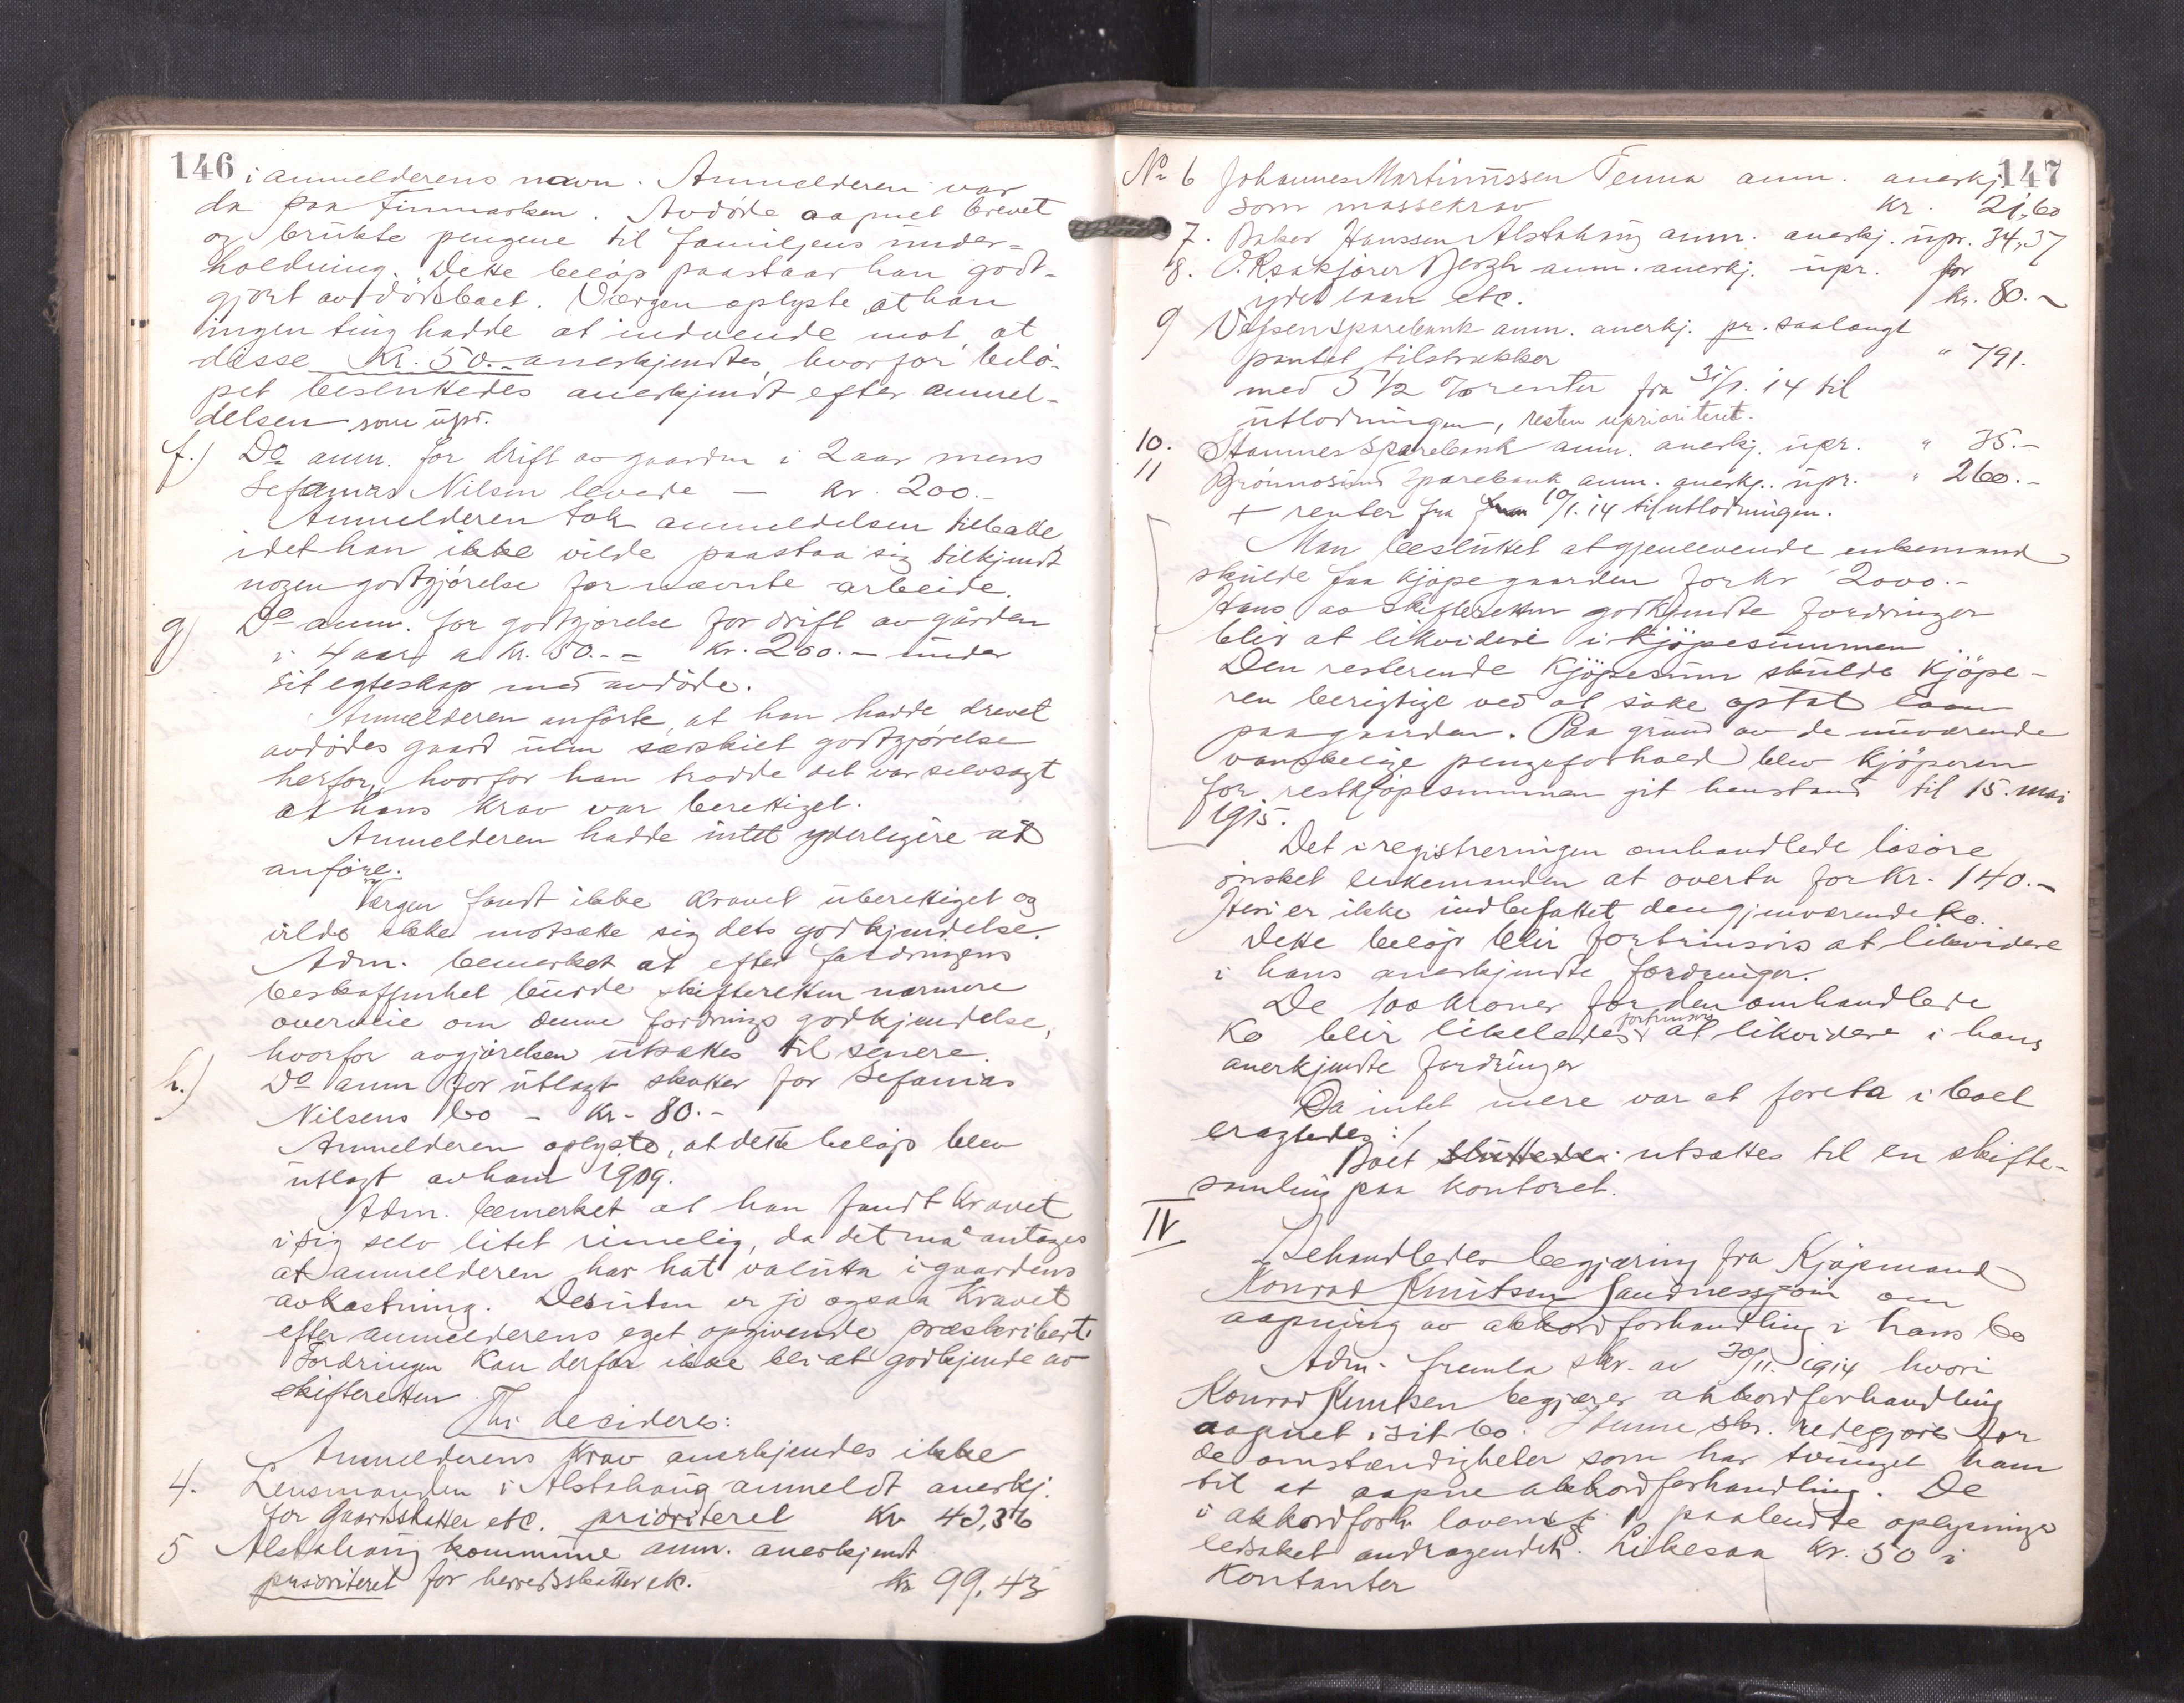 146
i anmelderens navn. Anmelderen var
da paa Finmarken. Avdöde aapnet brevet
og brukte pengene til familjens under=
holdning. Dette belöp paastaar han godt-
gjort av dödsboet. Værgen oplyste at han
ingen ting hadde at indvende mot at
disse Kr. 50.- anerkjendtes, hvorfor belö-
pet besluttedes anerkjendt efter anmel-
delsen som upr.
f.) Do anm. for drift av gaarden i 2 aar mens
Sefanias Nilsen levede — kr. 200.-
Anmelderen tok anmeldelsen tilbake
idet han ikke vilde paastaa sig tilkjendt
nogen godtgjörelse for nævnte arbeide.
g) Do anm. for godtgjörelse for drift av gården
i 4 aar a kr. 50.- = kr. 200.- under
sit egteskap med avdöde.
Anmelderen anförte, at han hadde drevet
avdödes gaard uten særskilt godtgjörelse
herfor, hvorfor han trodde det var selvsagt
at hans krav var berettiget.
Anmelderen hadde intet yderligere at
anföre.
Værgen fandt ikke kravet uberettiget og
vilde ikke motsætte sig dets godkjendelse.
Adm. bemerket at efter fordringens
beskaffenhet burde skifteretten nærmere
overveie om denne fordrings godkjendelse,
hvorfor avgjörelsen utsættes til senere.
h.) Do anm for utlagt skatter for Sefanias
Nilsens bo - kr. 80.-
Anmelderen oplyste, at dette belöp blev
utlagt av ham 1909.
Adm. bemerket at han fandt kravet
i sig selv litet rimelig, da det må antages
at anmelderen har hat valuta i gaardens
avkastning. Desuten er jo ogsaa kravet
efter anmelderens eget opgivende præskribert.
Fordringen kan derfor ikke bli at godkjende av
skifteretten.
Thi decideres:
Anmelderens krav anerkjendes ikke
4. Lensmanden i Alstahaug anmeldt anerkj.
for gaardsskatter etc. prioriteret Kr 42,36
5 Alstahaug kommune anm. anerkjendt
prioriteret for herredsskatter etc. kr 99,43
147
No 6 Johannes Martinussen Tenna anm. anerkj.
som massekrav kr. 21,60
7. Baker Hanssen Alstahaug anm. anerkj. upr. 34,37
8. O.R.sakförer Bergh anm. anerkj. upr. for
ydet laan etc. kr. 80.-
9 Vefsen sparebank anm. anerkj. pr. saalangt
pantet tilstrækker " 791.
med 5 1/2 % renter fra 31/1. 14 til
utlodningen, resten uprioriteret.
10. Stamnes sparebank anm. anerkj. upr. " 35.-
11 Brönnösund sparebank anm. anerkj. upr. " 260.-
+ renter fra 10/1. 14 til utlodningen.
Man besluttet at gjenlevende enkemand
skulde faa kjöpe gaarden for kr 2000.-
Hans av skifteretten godkjendte fordringer
blir at likvidere i kjöpesummen
Den resterende kjöpesum skulde kjöpe-
ren berigtige ved at söke optat laan
paa gaarden. Paa grund av de nuværende
vanskelige pengeforhold blev kjöperen
for restkjöpesummen git henstand til 15. mai
1915.
Det i registreringen omhandlede lösöre
önsket enkemanden at overta for kr. 140.-
Heri er ikke indbefattet den gjenværende ko.
Dette belöp blir fortrinsvis at likvidere
i hans anerkjendte fordringer.
De 100 kroner for den omhandlede
ko blir likeledes fortrinsvis at likvidere i hans
anerkjendte fordringer
Da intet mere var at foreta i boet
eragtedes:
Boet sluttede utsættes til en skifte-
samling paa kontoret.
IV
Behandledes begjæring fra Kjöpmand
Konrad Knutsen Sandnessjöen om
aapning av akkordforhandling i hans bo
Adm. fremla skr. av 30/11. 1914 hvori
Konrad Knutsen begjærer akkordforhandling
aapnet i sit bo. I denne skr. redegjöres for
de omstændigheter som har tvunget ham
til at aapne akkordforhandling. De
i akkordforh. lovens § 1 paabudte oplysninger
ledsaket andragendet. Likesaa kr. 50 i
kontanter